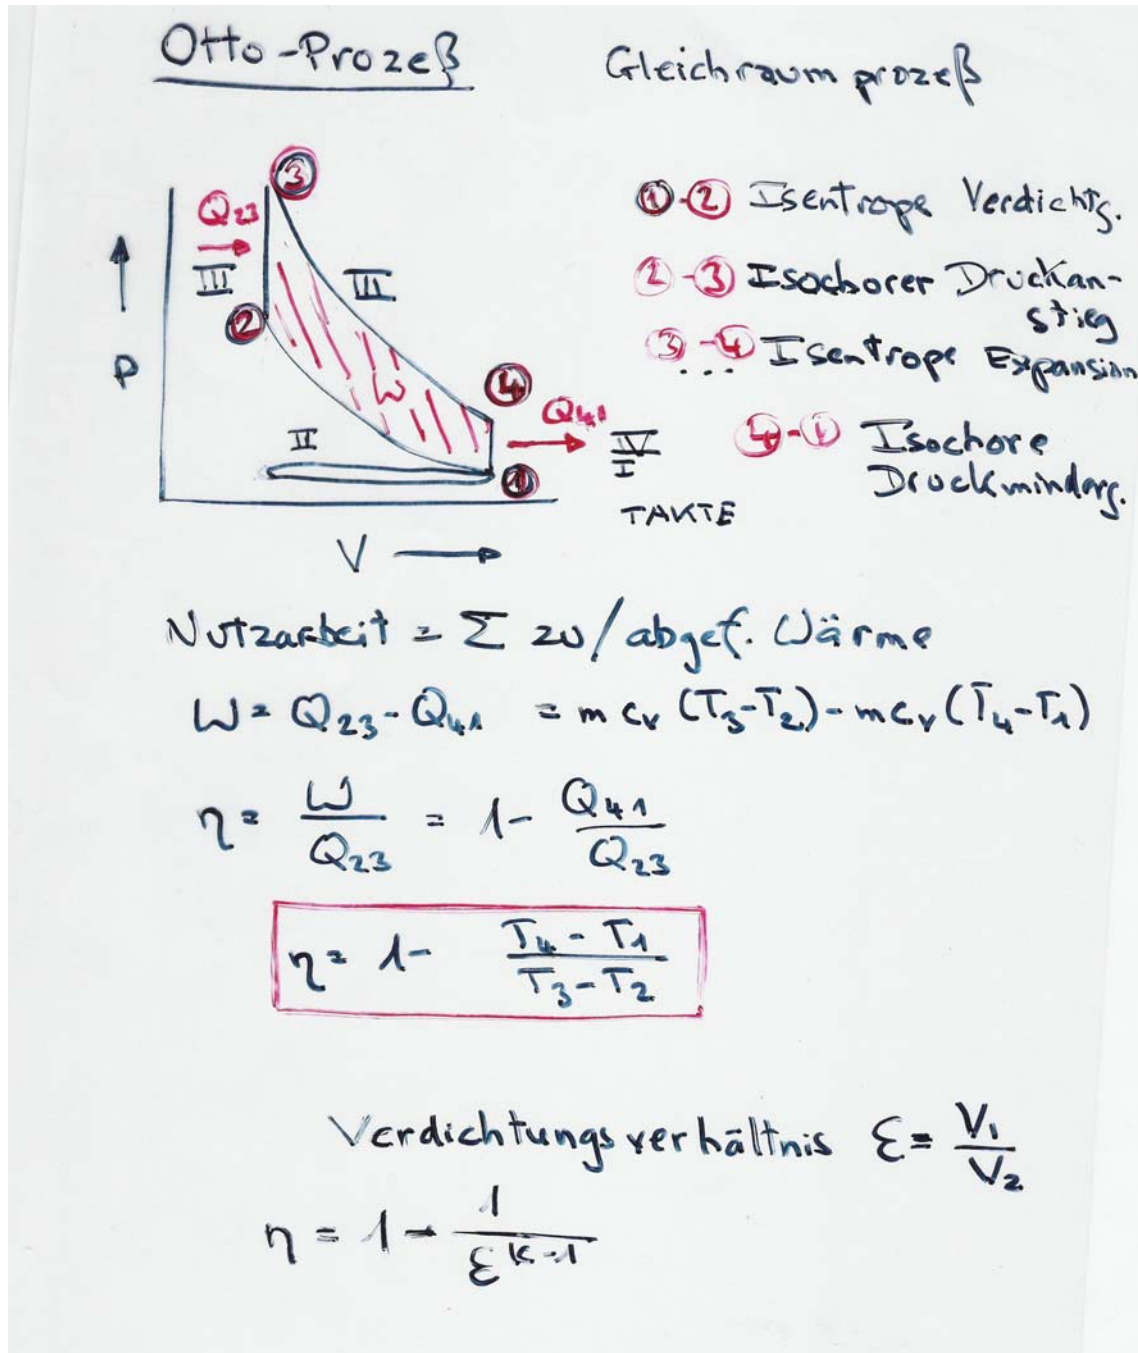 Otto-Prozeß
Gleichraumprozeß
③
Q₂₃
III
III
②
P
W
④
Q₄₁
II
①
IV
I
TAKTE
V
①-② Isentrope Verdichtg.
②-③ Isochorer Druckan-
stieg
③-④ Isentrope Expansion
...
④-① Isochore
Druckminderg.
Nutzarbeit = Σ zu/abgef. Wärme
W = Q₂₃ - Q₄₁ = m cᵥ (T₃-T₂) - m cᵥ (T₄-T₁)
η = W / Q₂₃ = 1 - Q₄₁ / Q₂₃
η = 1 - (T₄ - T₁) / (T₃ - T₂)
Verdichtungsverhältnis ε = V₁ / V₂
η = 1 - 1 / ε^(κ-1)